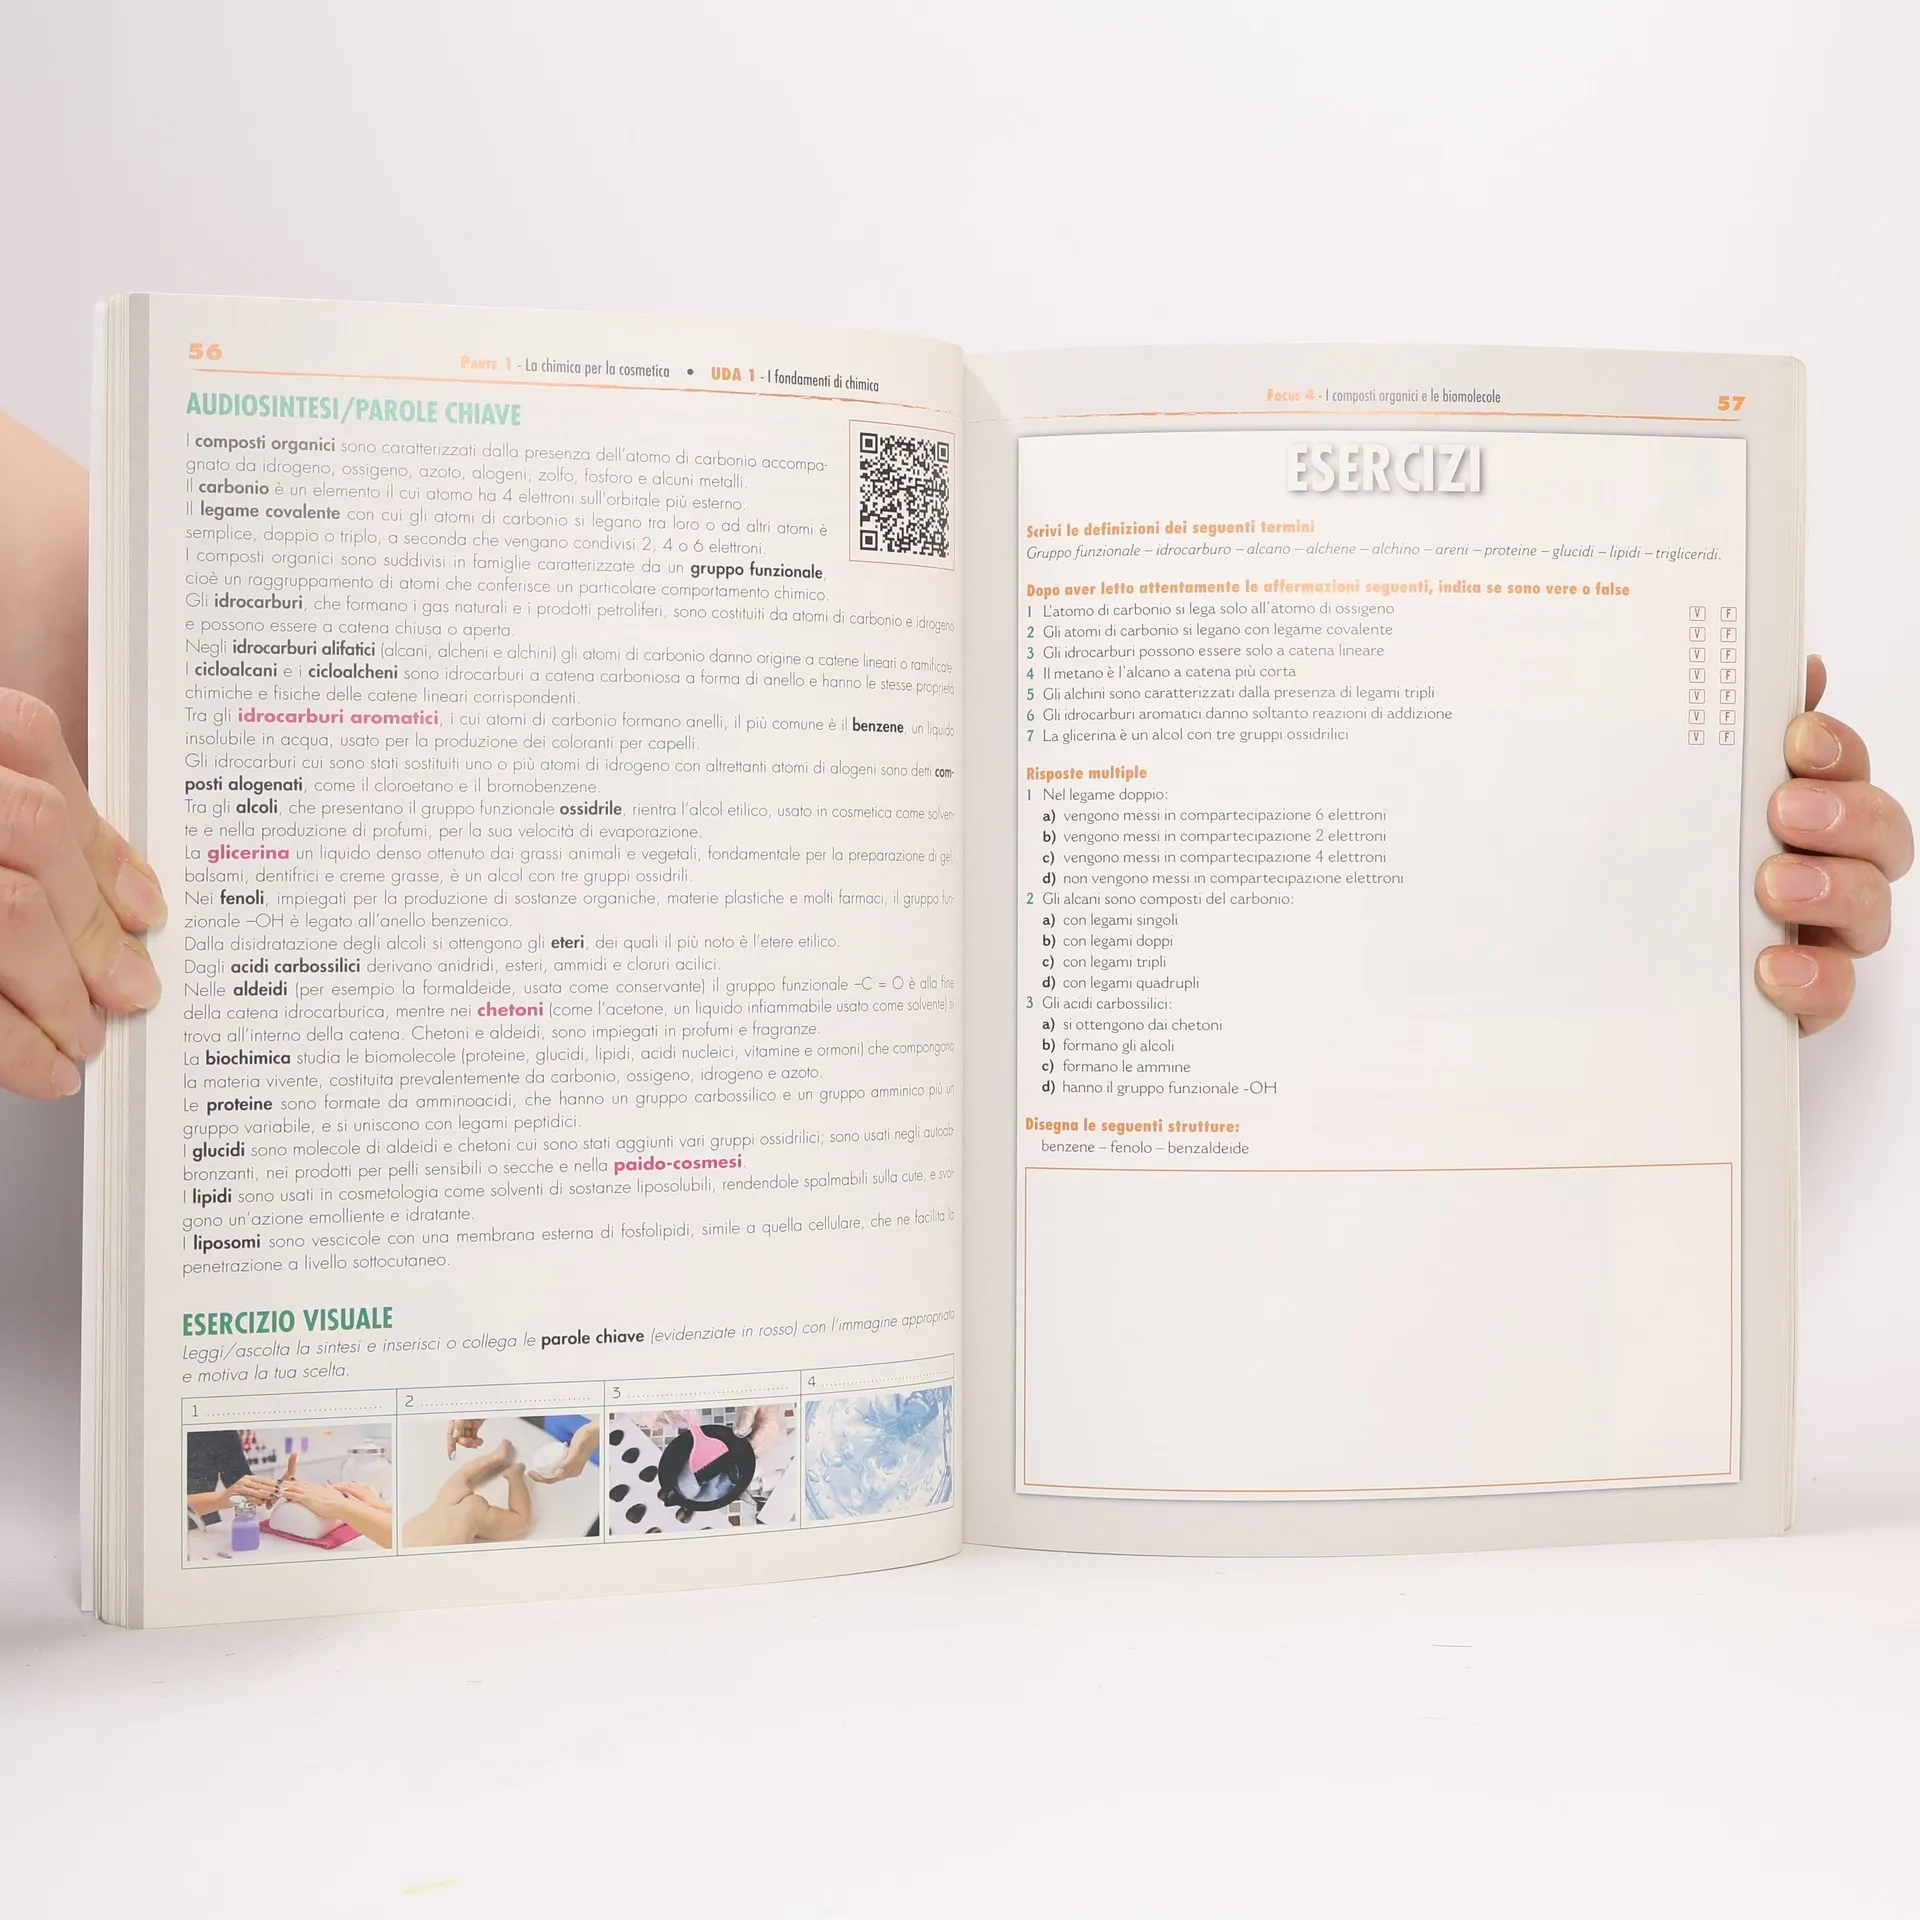 56
PARTE 1 - La chimica per la cosmetica • UDA 1 - I fondamenti di chimica
AUDIOSINTESI/PAROLE CHIAVE
I composti organici sono caratterizzati dalla presenza dell'atomo di carbonio accompa-
gnato da idrogeno, ossigeno, azoto, alogeni, zolfo, fosforo e alcuni metalli.
Il carbonio è un elemento il cui atomo ha 4 elettroni sull'orbitale più esterno.
Il legame covalente con cui gli atomi di carbonio si legano tra loro o ad altri atomi è
semplice, doppio o triplo, a seconda che vengano condivisi 2, 4 o 6 elettroni.
I composti organici sono suddivisi in famiglie caratterizzate da un gruppo funzionale,
cioè un raggruppamento di atomi che conferisce un particolare comportamento chimico.
Gli idrocarburi, che formano i gas naturali e i prodotti petroliferi, sono costituiti da atomi di carbonio e idrogeno
e possono essere a catena chiusa o aperta.
Negli idrocarburi alifatici (alcani, alcheni e alchini) gli atomi di carbonio danno origine a catene lineari o ramificate.
I cicloalcani e i cicloalcheni sono idrocarburi a catena carboniosa a forma di anello e hanno le stesse proprietà
chimiche e fisiche delle catene lineari corrispondenti.
Tra gli idrocarburi aromatici, i cui atomi di carbonio formano anelli, il più comune è il benzene, un liquido
insolubile in acqua, usato per la produzione dei coloranti per capelli.
Gli idrocarburi cui sono stati sostituiti uno o più atomi di idrogeno con altrettanti atomi di alogeni sono detti com-
posti alogenati, come il cloroetano e il bromobenzene.
Tra gli alcoli, che presentano il gruppo funzionale ossidrile, rientra l'alcol etilico, usato in cosmetica come solven-
te e nella produzione di profumi, per la sua velocità di evaporazione.
La glicerina un liquido denso ottenuto dai grassi animali e vegetali, fondamentale per la preparazione di gel,
balsami, dentifrici e creme grasse, è un alcol con tre gruppi ossidrili.
Nei fenoli, impiegati per la produzione di sostanze organiche, materie plastiche e molti farmaci, il gruppo fun-
zionale –OH è legato all'anello benzenico.
Dalla disidratazione degli alcoli si ottengono gli eteri, dei quali il più noto è l'etere etilico.
Dagli acidi carbossilici derivano anidridi, esteri, ammidi e cloruri acilici.
Nelle aldeidi (per esempio la formaldeide, usata come conservante) il gruppo funzionale –C = O è alla fine
della catena idrocarburica, mentre nei chetoni (come l'acetone, un liquido infiammabile usato come solvente) si
trova all'interno della catena. Chetoni e aldeidi, sono impiegati in profumi e fragranze.
La biochimica studia le biomolecole (proteine, glucidi, lipidi, acidi nucleici, vitamine e ormoni) che compongono
la materia vivente, costituita prevalentemente da carbonio, ossigeno, idrogeno e azoto.
Le proteine sono formate da amminoacidi, che hanno un gruppo carbossilico e un gruppo amminico più un
gruppo variabile, e si uniscono con legami peptidici.
I glucidi sono molecole di aldeidi e chetoni cui sono stati aggiunti vari gruppi ossidrilici; sono usati negli autoab-
bronzanti, nei prodotti per pelli sensibili o secche e nella paido-cosmesi.
I lipidi sono usati in cosmetologia come solventi di sostanze liposolubili, rendendole spalmabili sulla cute, e svol-
gono un'azione emolliente e idratante.
I liposomi sono vescicole con una membrana esterna di fosfolipidi, simile a quella cellulare, che ne facilita la
penetrazione a livello sottocutaneo.
ESERCIZIO VISUALE
Leggi/ascolta la sintesi e inserisci o collega le parole chiave (evidenziate in rosso) con l'immagine appropriata
e motiva la tua scelta.
1 ........................ 2 ........................ 3 ........................ 4 ........................
Focus 4 - I composti organici e le biomolecole
57
ESERCIZI
Scrivi le definizioni dei seguenti termini
Gruppo funzionale – idrocarburo – alcano – alchene – alchino – areni – proteine – glucidi – lipidi – trigliceridi.
Dopo aver letto attentamente le affermazioni seguenti, indica se sono vere o false
1 L'atomo di carbonio si lega solo all'atomo di ossigeno V F
2 Gli atomi di carbonio si legano con legame covalente V F
3 Gli idrocarburi possono essere solo a catena lineare V F
4 Il metano è l'alcano a catena più corta V F
5 Gli alchini sono caratterizzati dalla presenza di legami tripli V F
6 Gli idrocarburi aromatici danno soltanto reazioni di addizione V F
7 La glicerina è un alcol con tre gruppi ossidrilici V F
Risposte multiple
1 Nel legame doppio:
a) vengono messi in compartecipazione 6 elettroni
b) vengono messi in compartecipazione 2 elettroni
c) vengono messi in compartecipazione 4 elettroni
d) non vengono messi in compartecipazione elettroni
2 Gli alcani sono composti del carbonio:
a) con legami singoli
b) con legami doppi
c) con legami tripli
d) con legami quadrupli
3 Gli acidi carbossilici:
a) si ottengono dai chetoni
b) formano gli alcoli
c) formano le ammine
d) hanno il gruppo funzionale -OH
Disegna le seguenti strutture:
benzene – fenolo – benzaldeide